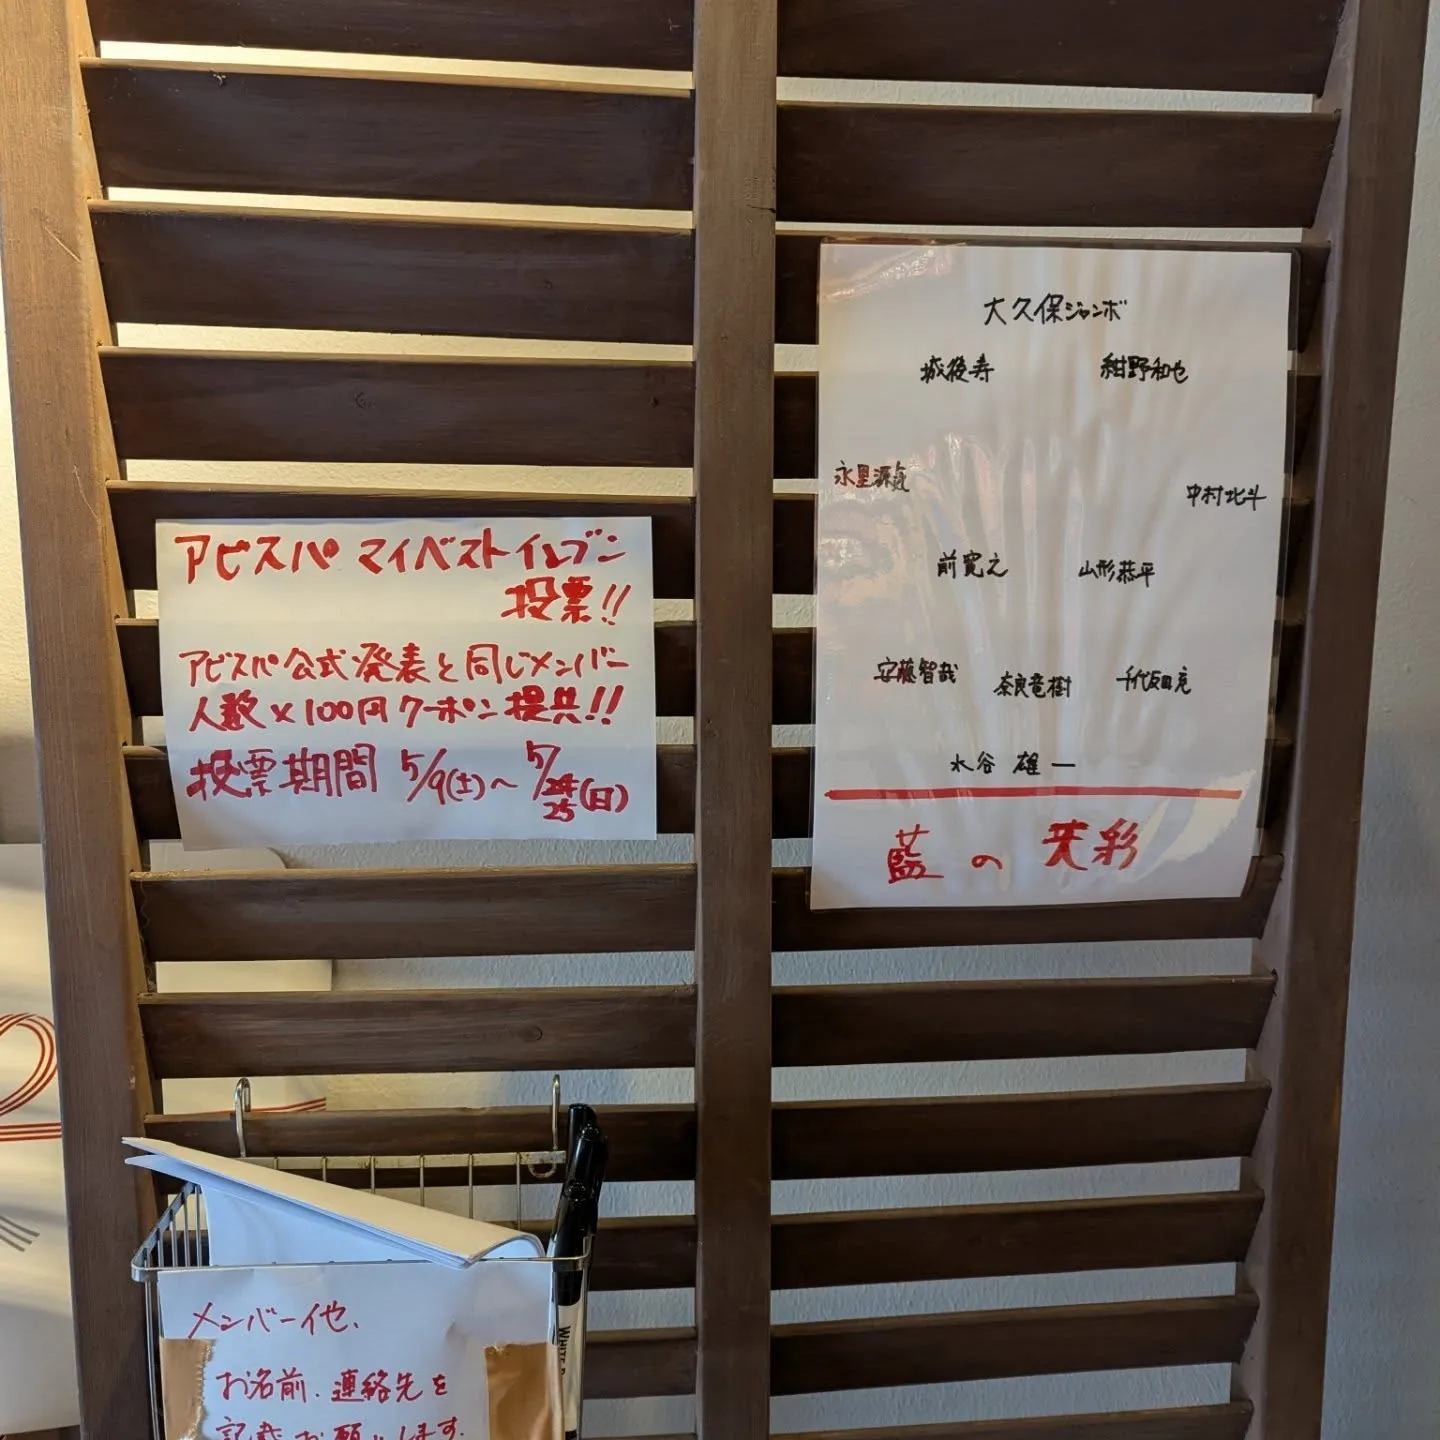 アビスパ マイベストイレブン
投票!!
アビスパ公式発表と同じメンバー
人数×100円クーポン提供!!
投票期間 5/9(土)〜5/25(日)
大久保ジャンボ
城後寿 紺野和也
永里源気 中村北斗
前寛之 山形恭平
安藤智哉 奈良竜樹 千代反田充
水谷 雄一
藍の 光彩
メンバー他、
お名前、連絡先を
記載お願いします。
WHITE